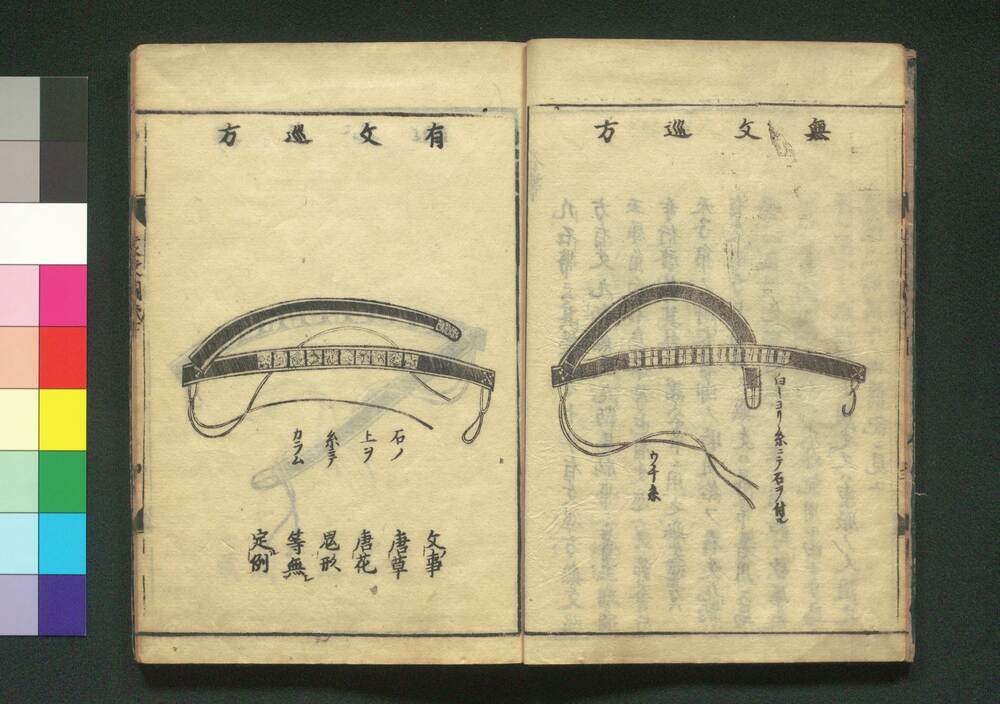 無文巡方
白ヨリ糸ニテ石ヲ付
ウチ糸
有文巡方
石ノ
上ヲ
糸ニテ
カラム
文事
唐草
唐花
鬼形
等無
定例